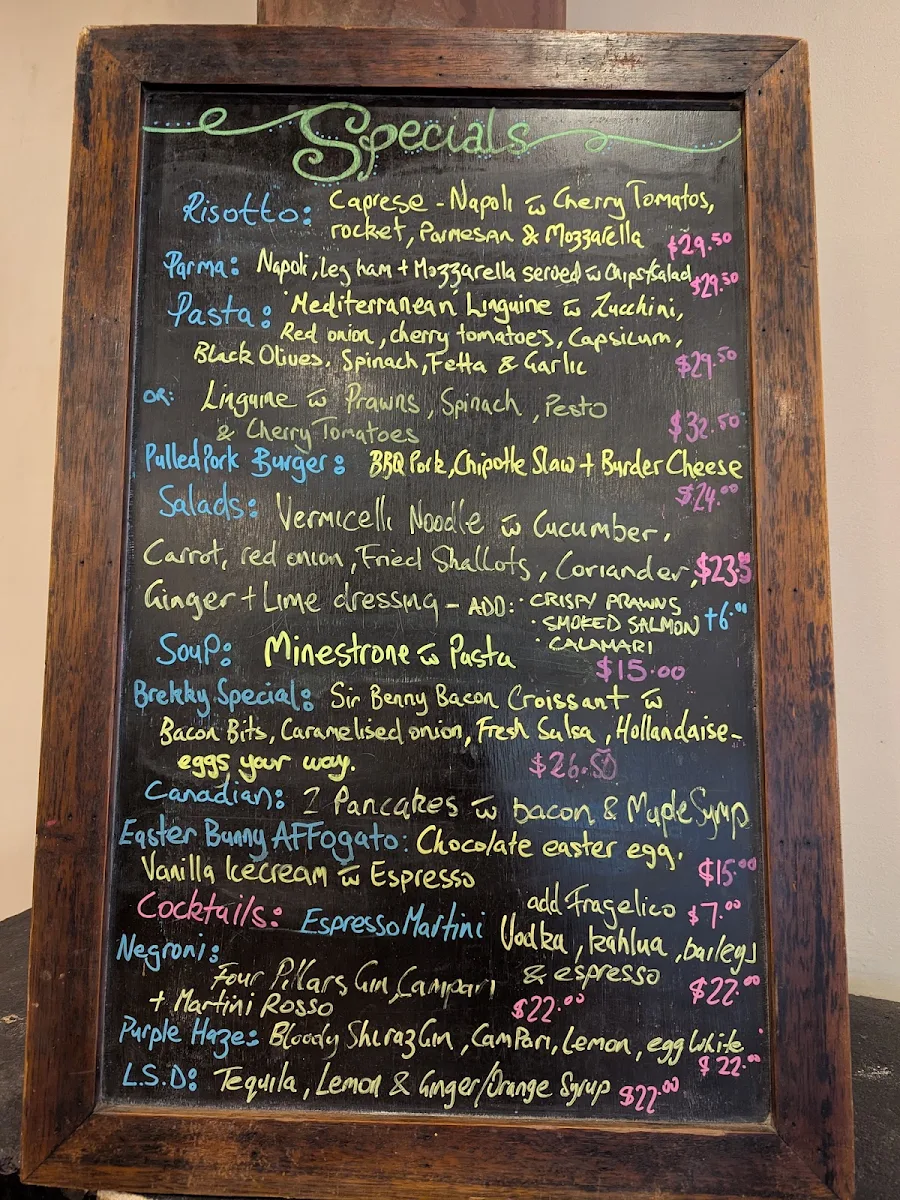 Specials
Risotto: Caprese - Napoli w Cherry Tomatos,
rocket, Parmesan & Mozzarella $29.50
Parma: Napoli, Leg ham + Mozzarella served w Chips/Salad $29.50
Pasta: 'Mediterranean' Linguine w Zucchini,
Red onion, cherry tomatoe's, Capsicum,
Black Olives, Spinach, Fetta & Garlic $29.50
OR: Linguine w Prawns, Spinach, Pesto
& Cherry Tomatoes $32.50
Pulled Pork Burger: BBQ Pork, Chipotle Slaw + Burder Cheese
$24.00
Salads: Vermicelli Noodle w Cucumber,
Carrot, red onion, Fried Shallots, Coriander, $23.5
Ginger + Lime dressing - ADD: · CRISPY PRAWNS
· SMOKED SALMON +6.00
· CALAMARI
Soup: Minestrone w Pasta $15.00
Brekky Special: Sir Benny Bacon Croissant w
Bacon Bits, Caramelised onion, Fresh Salsa, Hollandaise -
eggs your way. $26.50
Canadian: 2 Pancakes w bacon & Maple Syrup
Easter Bunny AFFogato: Chocolate easter egg,
Vanilla Icecream w Espresso $15.00
add Fragelico $7.00
Cocktails: Espresso Martini Vodka, kahlua, baileys
& espresso $22.00
Negroni:
Four Pillars Gin, Campari
+ Martini Rosso $22.00
Purple Haze: Bloody Shiraz Gin, Campari, Lemon, egg White
$22.00
L.S.D: Tequila, Lemon & Ginger/Orange Syrup $22.00